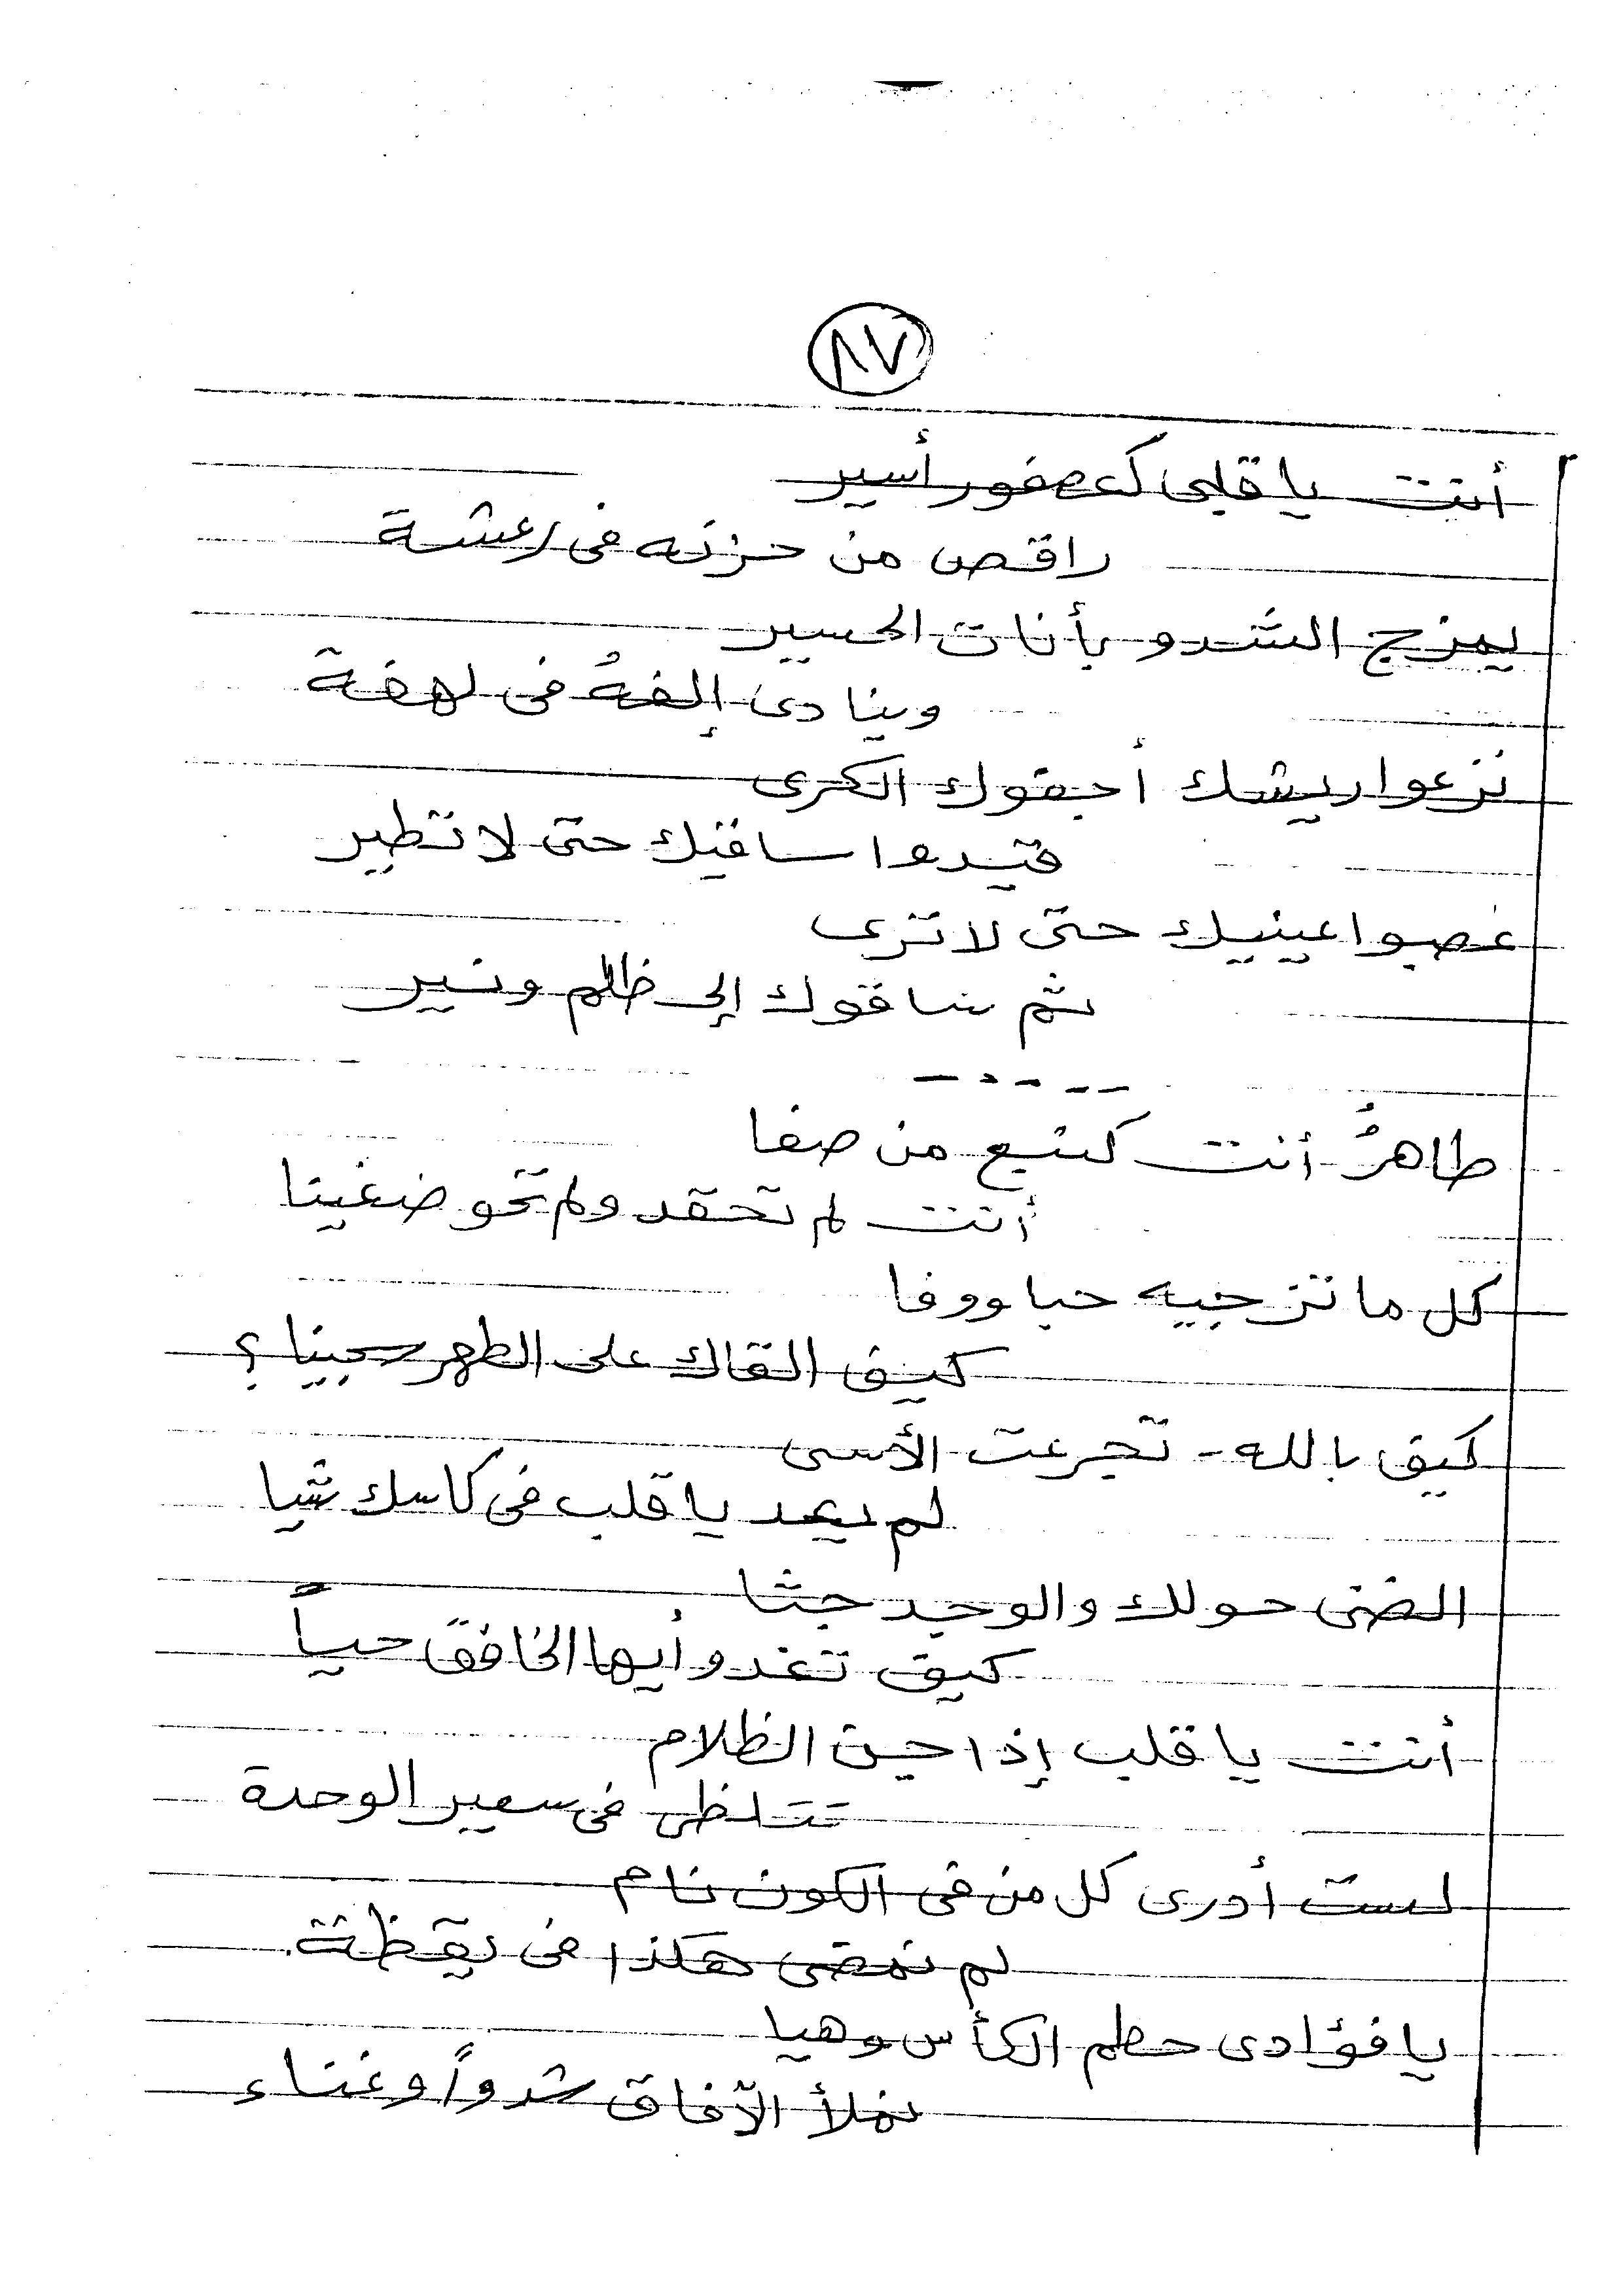 ٨٧
أنت يا قلبى كعصفور أسير
راقص من حزنه فى رعشة
يمزج الشدو بأنات الحسير
وينادى إلفهُ فى لهفة
نزعوا ريشك أجفوك الكرى
قيدوا ساقيك حتى لا تطير
غصبوا عينيك حتى لا ترى
ثم ساقوك إلى ظلم ونير
طاهرٌ أنت كنبع من صفا
أنت لم تحقد ولم تحو ضغينا
كل ما تزجيه حبا ووفا
كيف القاك على الطهر سجينا؟
كيف بالله - تجرعت الأسى
لم يعد يا قلب فى كاسك شيا
الضنى حولك والوجد جثا
كيف تغدو أيها الخافق حياً
أنت يا قلب إذا جن الظلام
تتلظى فى سعير الوحدة
لست أدرى كل من فى الكون نام
لم نمضى هكذا فى يقظة.
يا فؤادى حطم الكأس وهيا
نملأ الآفاق شدواً وغناء